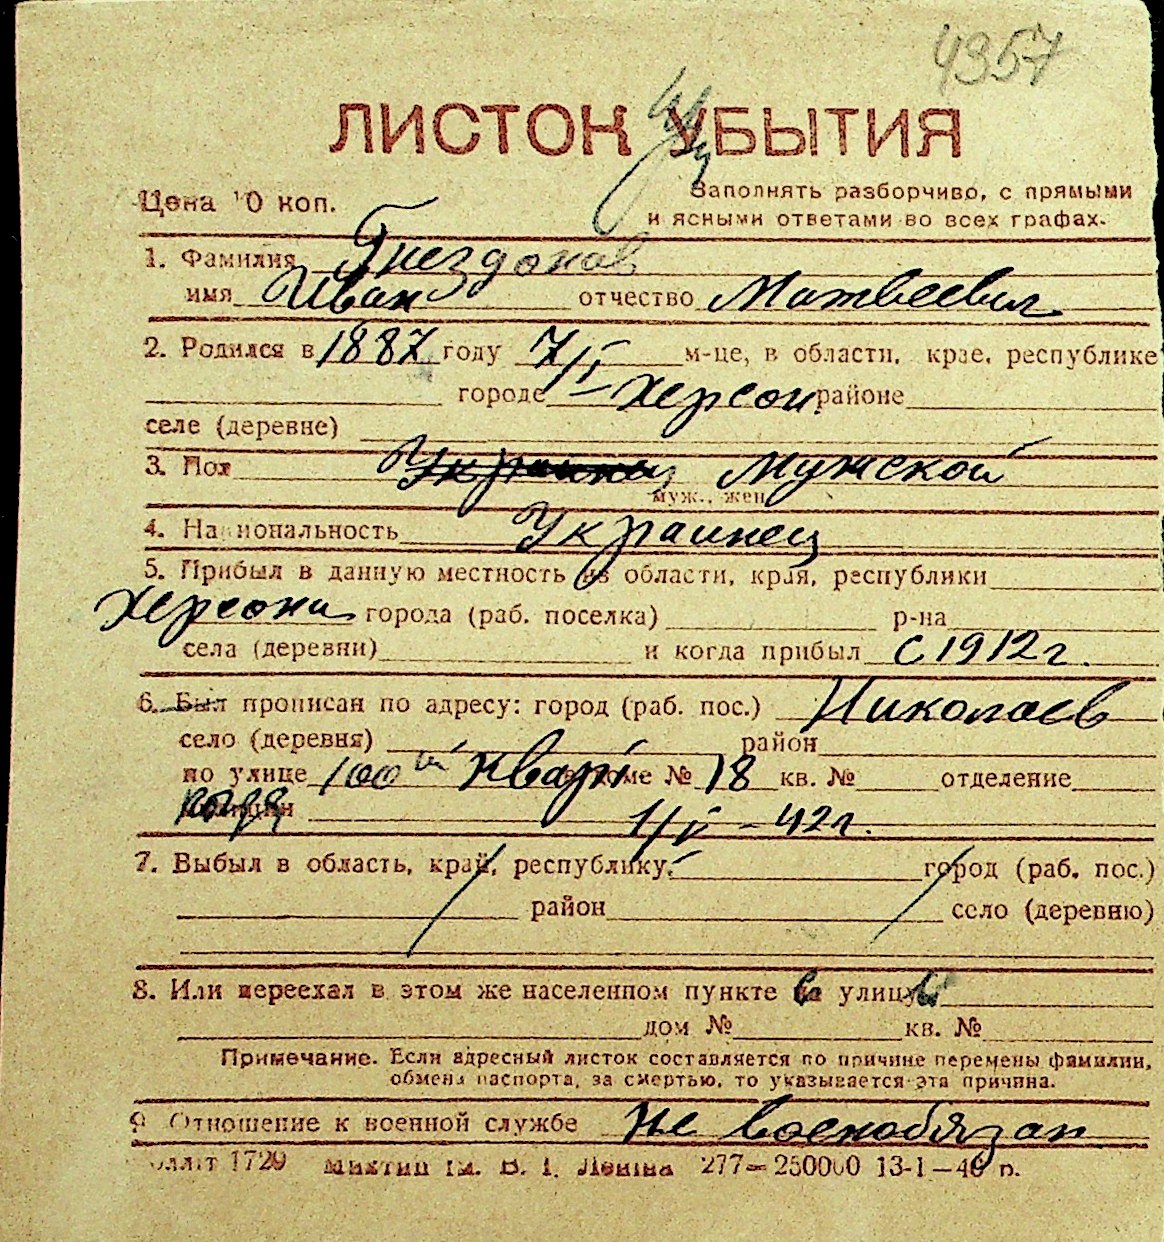 4357
ЛИСТОК УБЫТИЯ
Цена 10 коп.
Заполнять разборчиво, с прямыми
и ясными ответами во всех графах.
1. Фамилия Гнездонов
имя Иван отчество Матвеевич
2. Родился в 1887 году 7/I м-це, в области, крае, республике
городе Херсон районе
селе (деревне)
3. Пол Украинец Мужской
муж., жен.
4. Национальность Украинец
5. Прибыл в данную местность из области, края, республики
Херсони города (раб. поселка) р-на
села (деревни) и когда прибыл с 1912 г.
6. Был прописан по адресу: город (раб. пос.) Николаев
село (деревня) район
по улице 100ый кварт доме № 18 кв. № отделение
милиции 1/V - 42 г.
7. Выбыл в область, край, республику, город (раб. пос.)
район село (деревню)
8. Или переехал в этом же населенном пункте улицу
дом № кв. №
Примечание. Если адресный листок составляется по причине перемены фамилии,
обмена паспорта, за смертью, то указывается эта причина.
9 Отношение к военной службе не военобязан
1729 им. В. І. Леніна 277—250000 13-I—40 р.